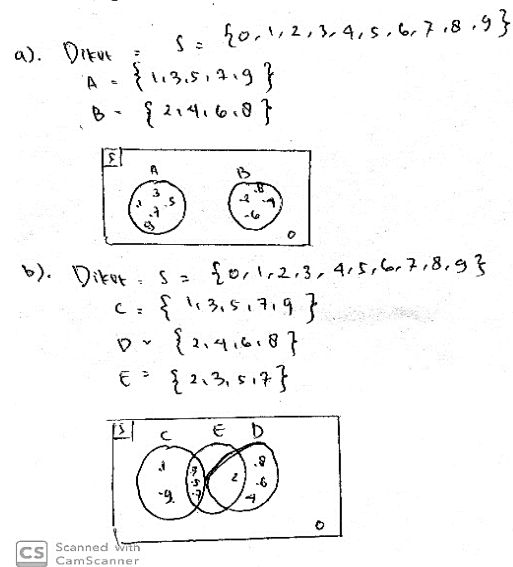 a). Diket : S = {0, 1, 2, 3, 4, 5, 6, 7, 8, 9}
A = {1, 3, 5, 7, 9}
B = {2, 4, 6, 8}
S
A B
.1 3 .5 .7 9
.2 .8 .4 .6
0
b). Diket : S = {0, 1, 2, 3, 4, 5, 6, 7, 8, 9}
C = {1, 3, 5, 7, 9}
D = {2, 4, 6, 8}
E = {2, 3, 5, 7}
S
C E D
.1 .3 2 .8
.5 .6
.9 .7 .4
0
CS Scanned with
CamScanner